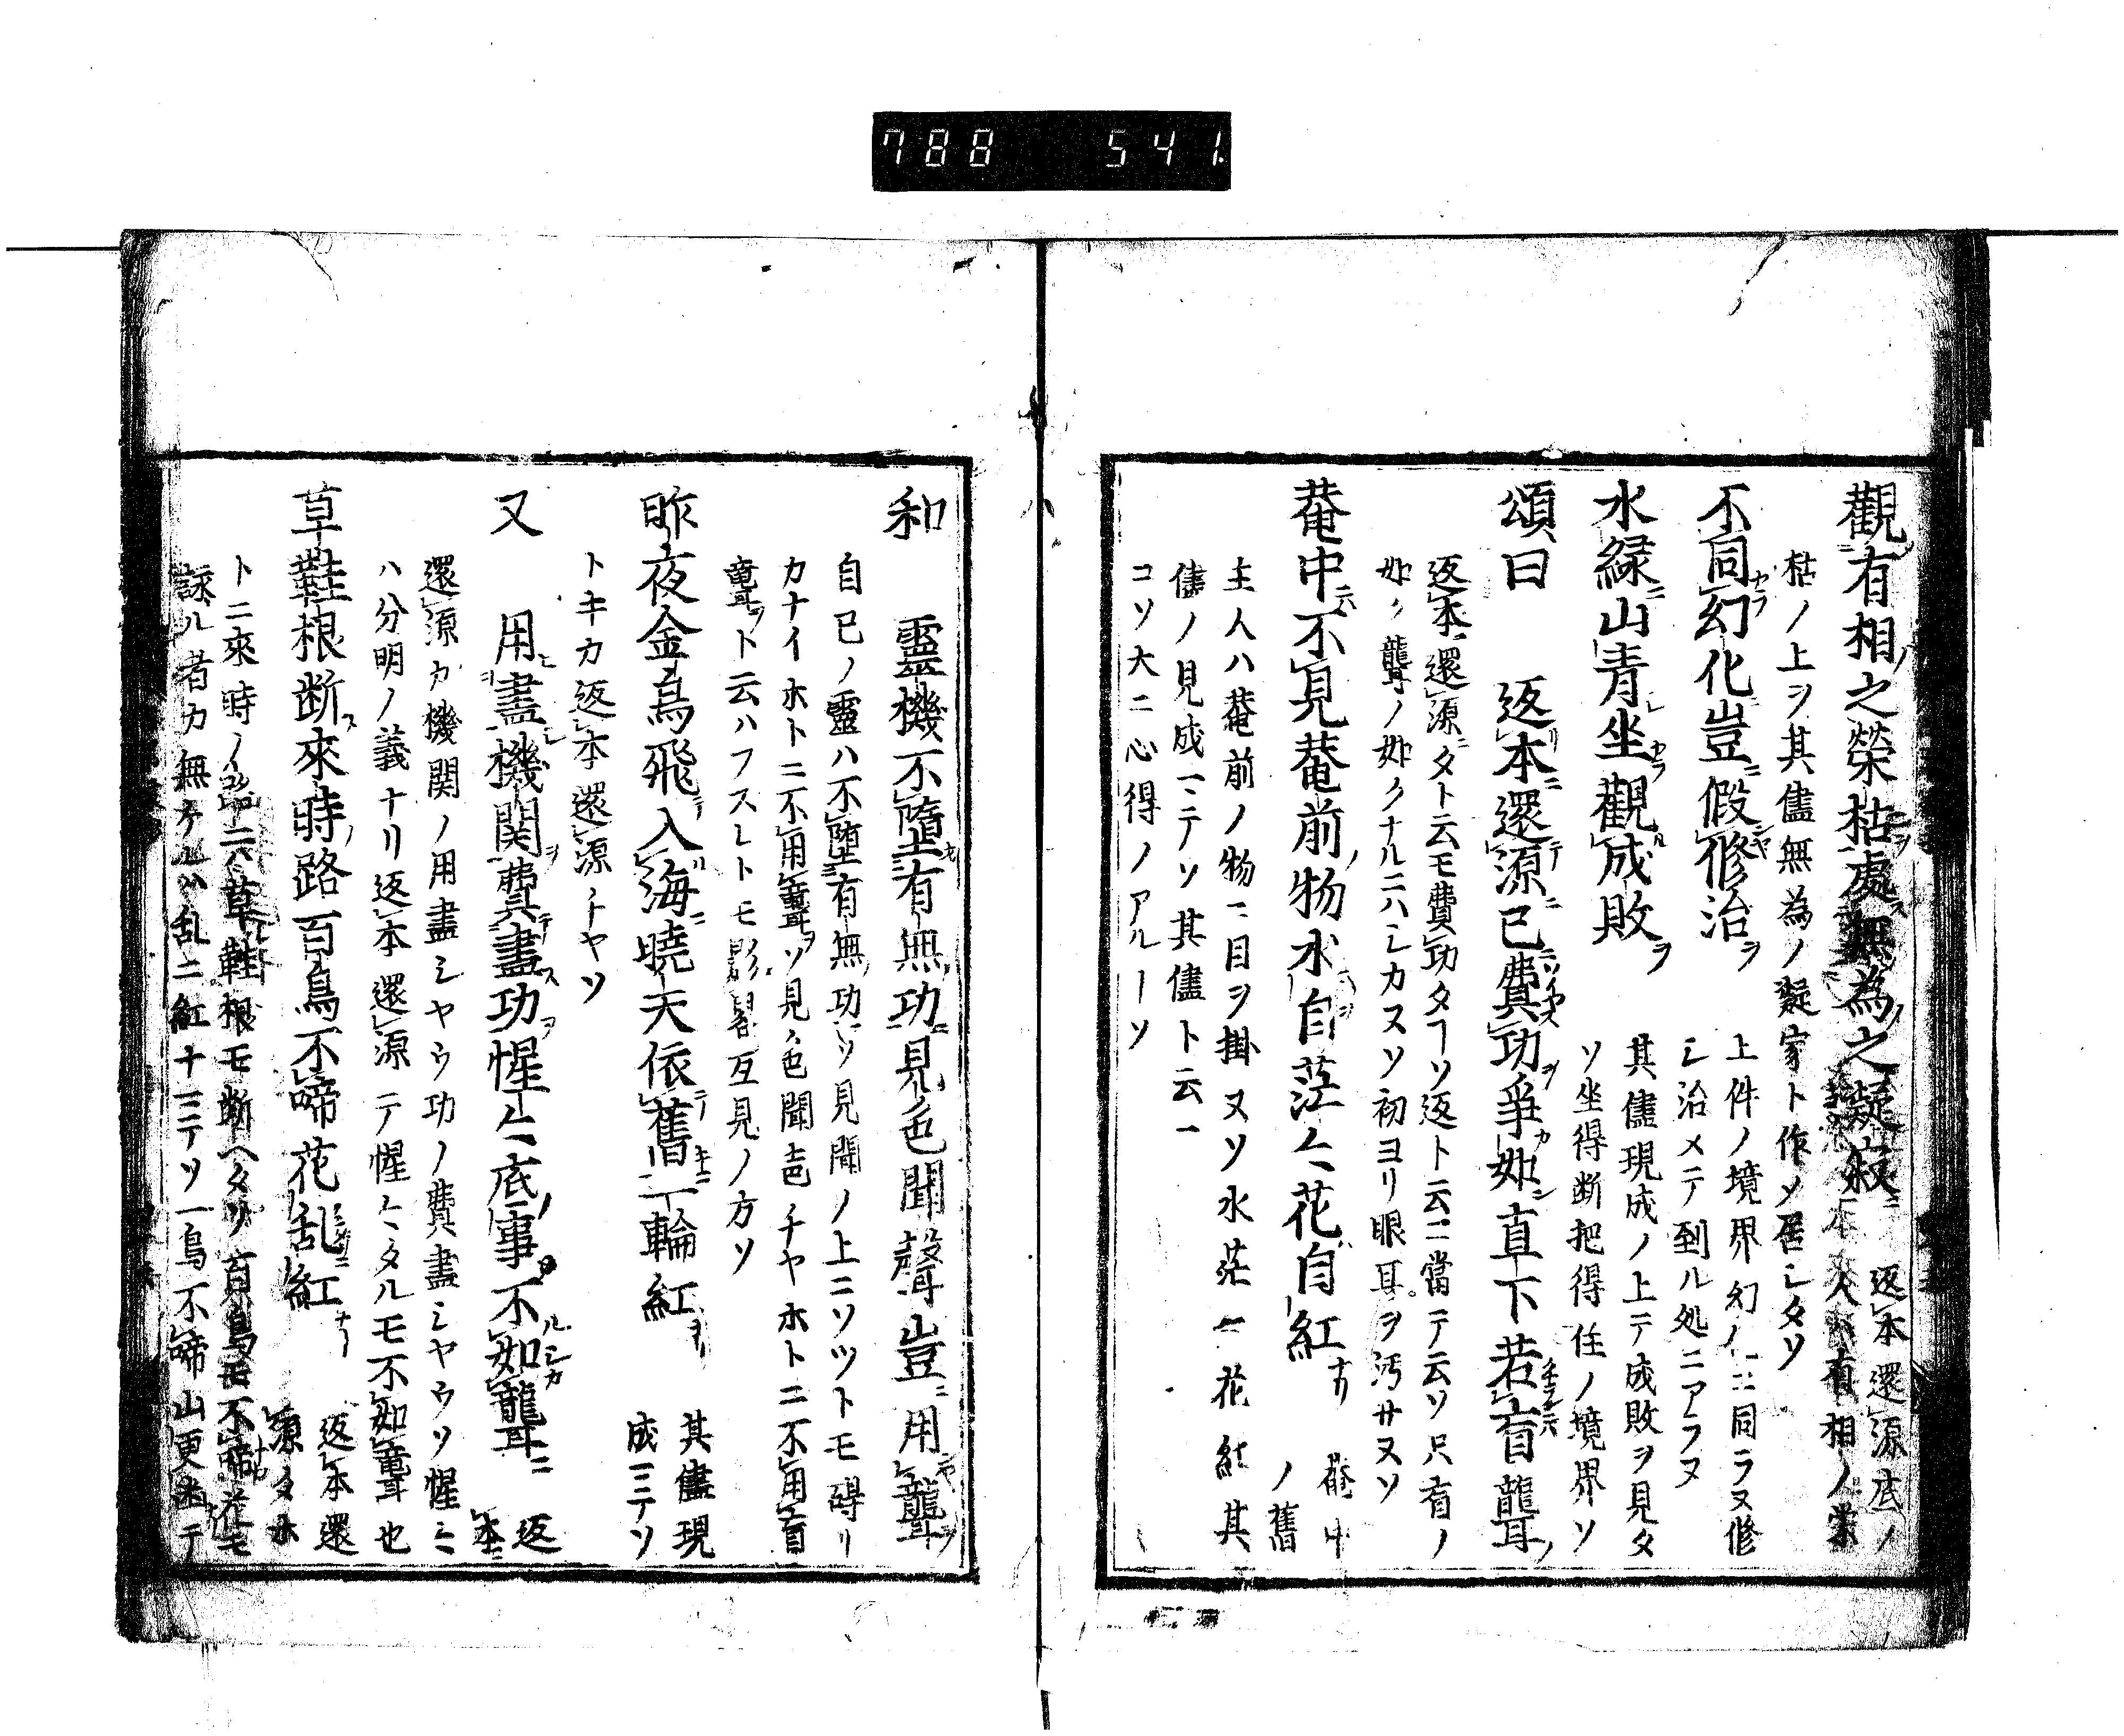 788 541
觀有相之榮枯處無為之凝寂 返本還源底ノ
本人ハ有相ノ榮
枯ノ上ヲ其儘無為ノ凝家ト作メ居シタソ
不同幻化豈假修治 上件ノ境界幻ノ二同ラヌ修
シ治メテ到ル処ニアラヌ
水緑山青坐觀成敗 其儘現成ノ上テ成敗ヲ見タ
ソ坐得断把得住ノ境界ソ
頌曰 返本還源已費功爭如直下若盲聾
返本還源タト云モ費功タヿソ返ト云ニ當テ云ソ只盲ノ
如ク聾ノ如クナルニハシカヌソ初ヨリ眼耳ヲ汚サヌソ
菴中不見菴前物水自茫々花自紅 菴中
ノ舊
主人ハ菴前ノ物ニ目ヲ掛ヌソ水茫一花紅其
儘ノ見成ニテソ其儘ト云一
コソ大ニ心得ノアルーソ
和 靈機不墮有無功見色聞聲豈用聾
自已ノ靈ハ不墮有無功ソ見聞ノ上ニソツトモ碍リ
カナイホトニ不用聾ソ見色聞声チヤホトニ不用盲
聾ト云ハフスレトモ影畧互見ノ方ソ
昨夜金烏飛入海曉天依舊一輪紅 其儘現
成ニテソ
トキカ返本還源トヤソ
又 用盡機関費盡功惺々底事不如聾 返
本
還源カ機関ノ用盡シヤウ功ノ費盡シヤウソ惺ミ
ハ分明ノ義ナリ返本還源ニテ惺々タルモ不如聾也
草鞋根断來時路百鳥不啼花乱紅 返本還
源タホ
トニ來時ノ路ニハ草鞋根モ断ヘタソ百鳥モ不啼花モ
詠ル者カ無ケレハ乱ニ紅ナニテソ一鳥不啼山更幽テ